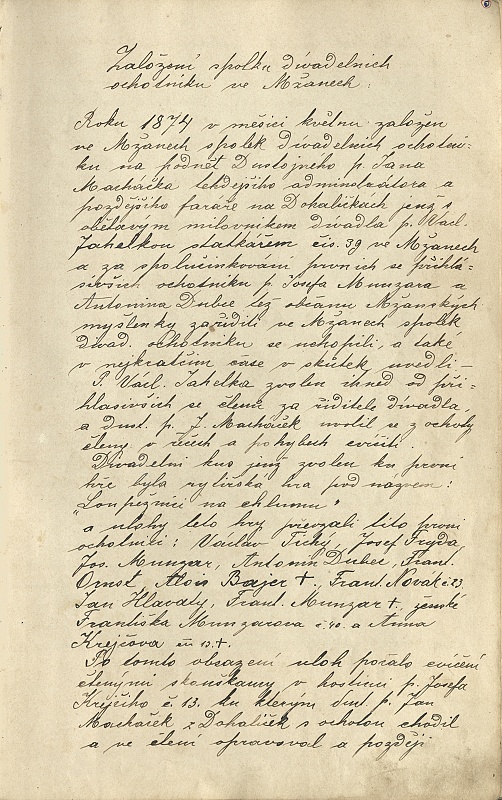 Založení spolku divadelních
ochotníku ve Mžanech.
Roku 1874 v měsíci květnu založen
ve Mžanech spolek divadelních ochotní-
ku na podnět Dustojného p. Jana
Macháčka tehdejšího adminstrátora a
pozdějšího faráře na Dohaličkách jenž s
obětavým milovníkem divadla p. Václ.
Jahelkou statkářem čís. 39 ve Mžanech
a za spolučinkování prvních se přihlá-
sivších ochotníku p. Josefa Munzara a
Antonína Dubce též občanu Mžanských
myšlenky zařiditi ve Mžanech spolek
divad. ochotníku se uchopili, a také
v nejkratčím čase v skutek uvedli –
P. Václ. Jahelka zvolen ihned od při-
hlasivších se členu za ředitele divadla,
a dust. p. J. Macháček uvolil se z ochoty
členy v řečech a pohybech cvičiti.
Divadelní kus jenž zvolen ku první
hře byla rytířská hra pod nazvem:
"Loupežníci na chlumu"
a ulohy této hry převzali tito první
ochotníci: Václav Tichý, Josef Fryda,
Jos. Munzar, Antonín Dubec, Frant.
Ornst, Alois Bajer +, Frant. Novák č 23
Jan Hlavatý, Frant. Munzar +, ženské
Františka Munzarova č. 40. a Anna
Krejčova čís 13. +.
Po tomto obsazení uloh počalo cvičení
čtenými skouškamy v hostinci p. Josefa
Krejčího č. 13. ku kterým dust. p. Jan
Macháček z Dohaliček s ochotou chodil
a ve čtení opravoval a později